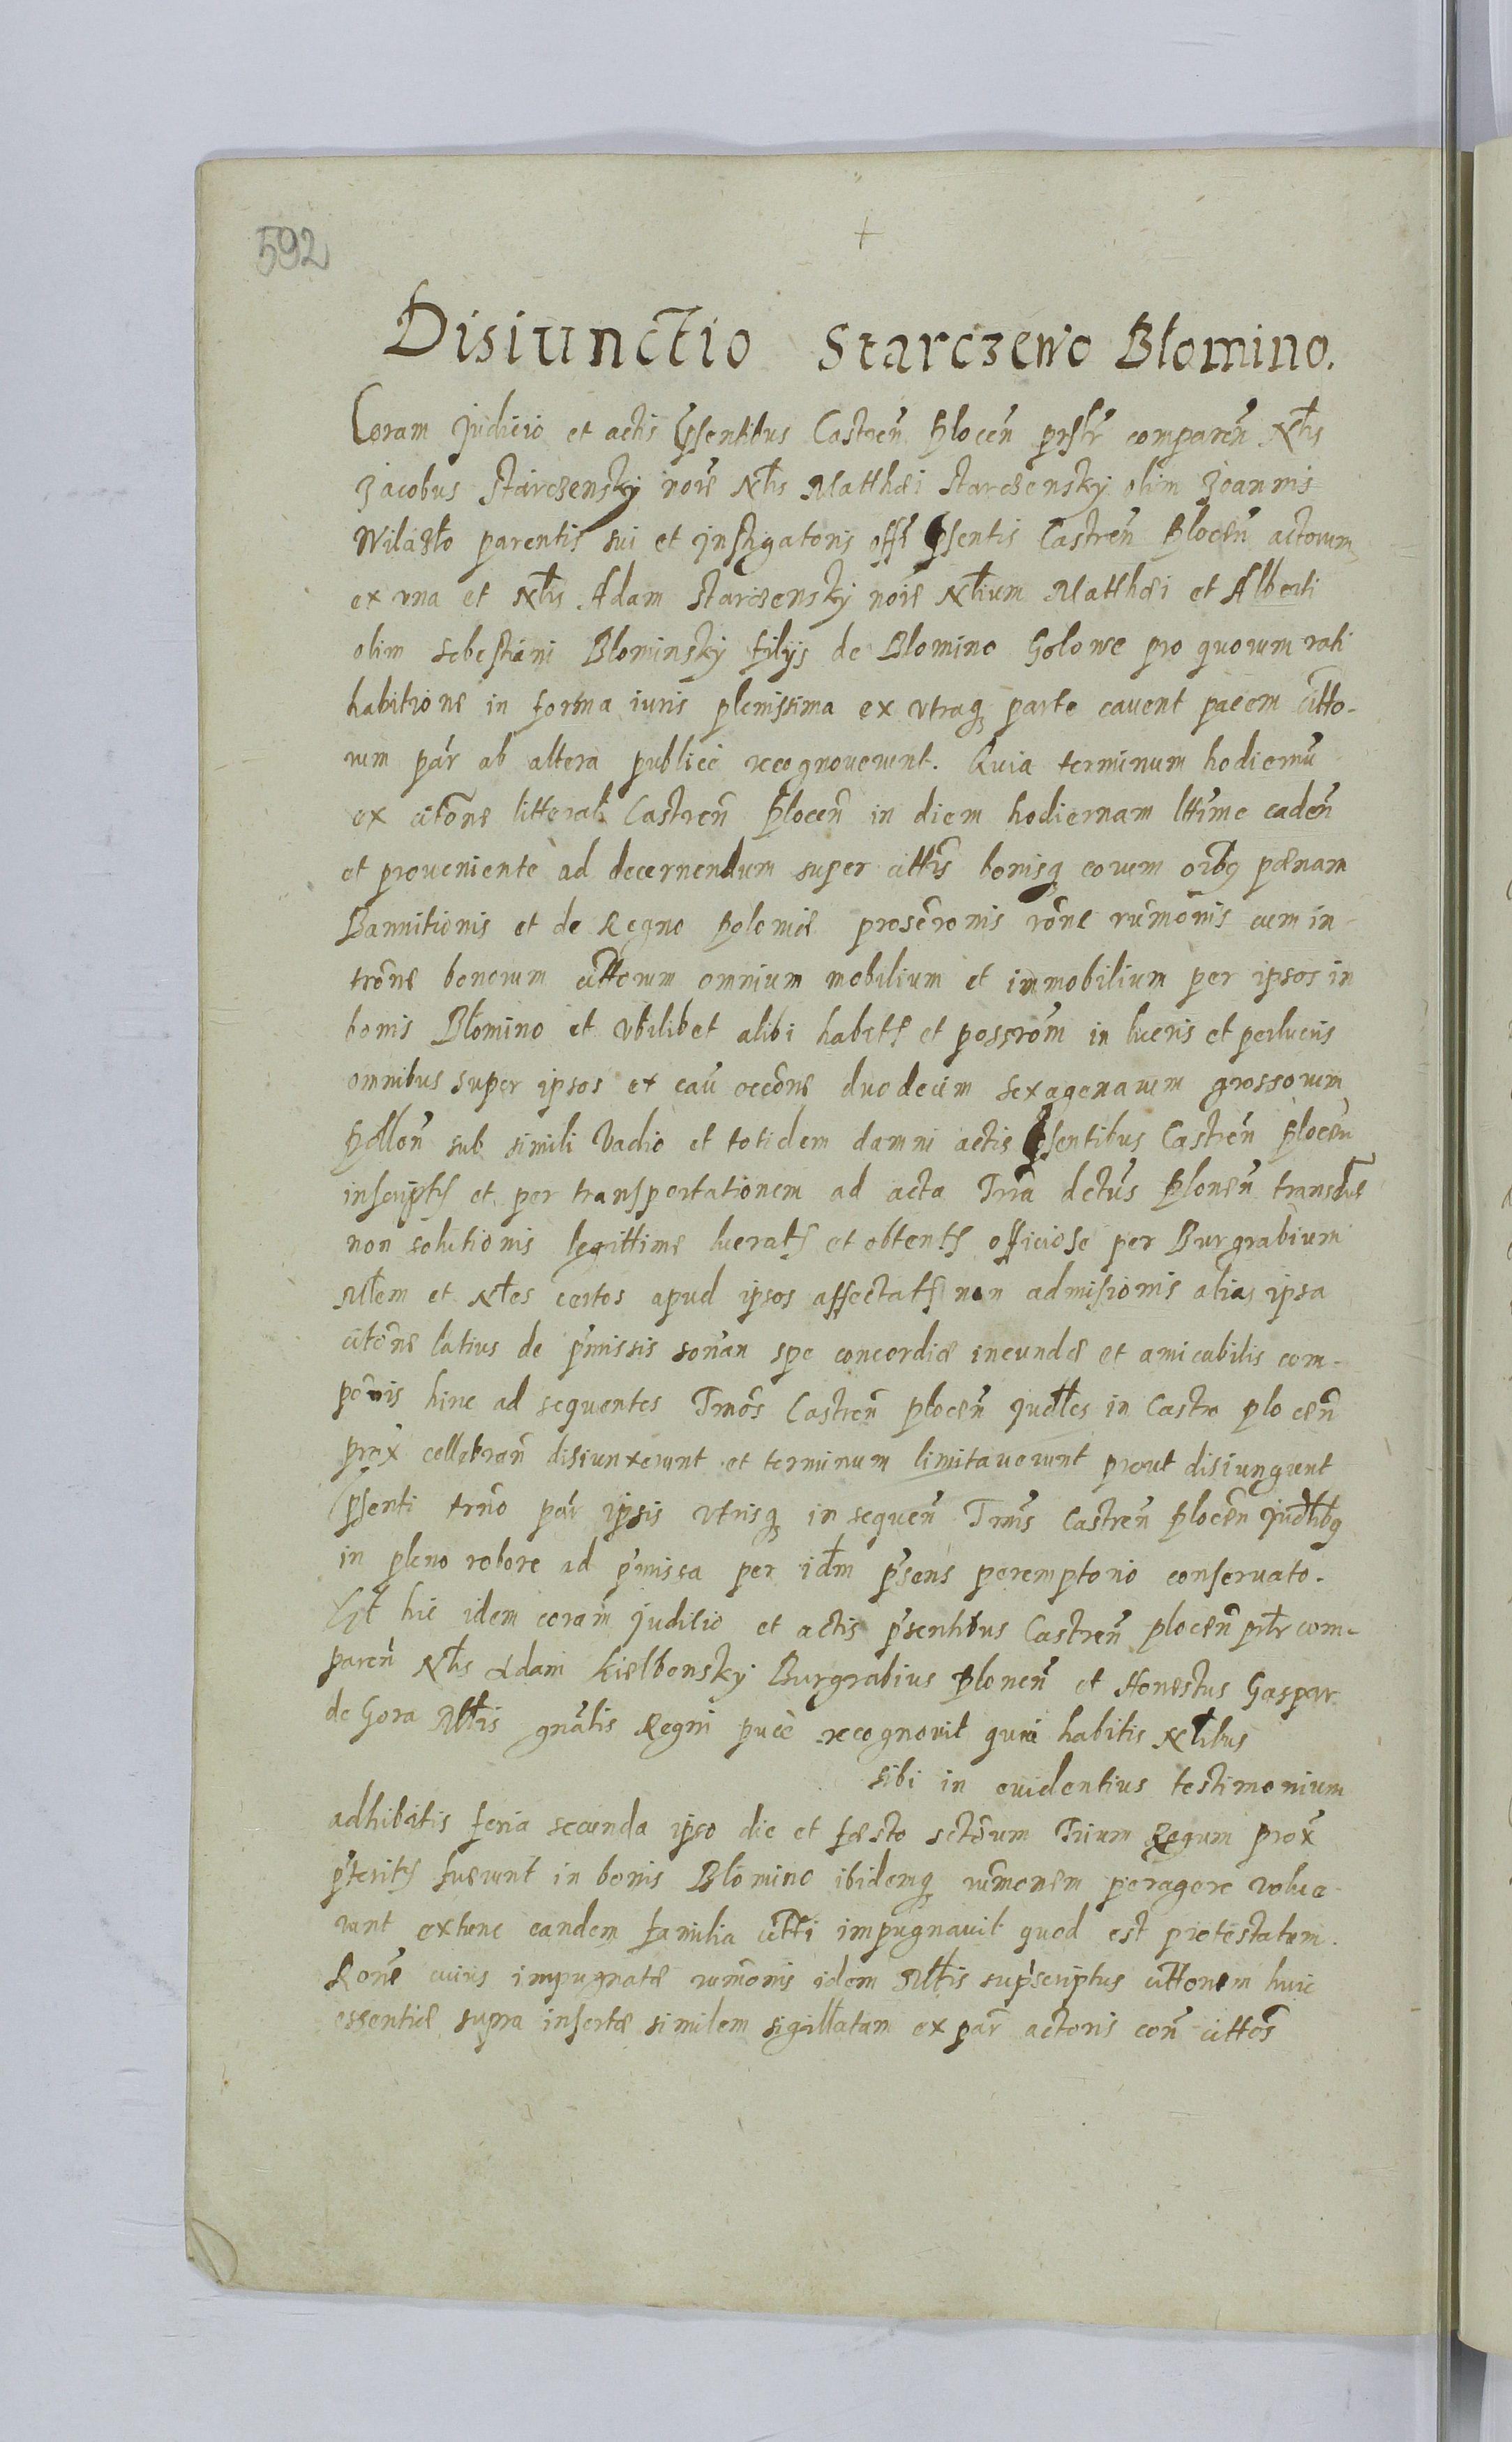 592
Disiunctio Starczewo Blomino.
Coram Judicio et actis psentibus Castreñ Plocen̄ prstr̄ comparen̄ Nt̄lis
Jacobus Starczensky noīe Nt̄lis Matthæi Starczensky olim Joannis
Wilażło parentis sui et Instigatoris off̄i psentis Castren̄ Plocen̄ actorum
ex vna et Nt̄lis Adam Starczensky noīe Nt̄lium Matthæi et Alberti
olim Sebestiani Blominsky filijs de Blomino Golowe pro quorum rati
habitione in forma iuris plenissima ex vtraq parte cavent pacem citto-
rum par̄ ab altera publice recognoverunt. Quia terminum hodiernū
ex citōne litterali Castren̄ Plocen̄ in diem hodiernam lt̄time caden̄
et proveniente ad decernendum super citt̄is bonisq eorum oībq pœnam
Bannitionis et de Regno Poloniæ proscr̄onis rōne rumōnis cum in-
trōne bonorum citt̄orum omnium mobilium et immobilium per ipsos in
bonis Blomino et vbilibet alibi habit et possrōm in lucris et perlucris
omnibus super ipsos ex cau occōne duodecim sexagenarum grossorum
Pollon̄ sub simili Vadio et totidem damni actis psentibus Castren̄ Plocen̄
inscript et per transportationem ad acta Trr̄a Plonen̄
non solutionis legittime lucrat et obtent officiose per Burgrabium
Mt̄lem et Nt̄les certos apud ipsos affectat non admisionis alias ipsa
citōne latius de p̄missis sonan̄ spe concordiæ ineundæ et amicabilis com-
pōnis hinc ad sequentes Trmōs Castren̄ plocen̄ judt̄les in Castro plocen̄
prox̄ cellebran̄ disiunxerunt et terminum limitaverunt prout disiungunt
psenti trn̄o par̄ ipsis vtrisq in sequen̄ Trmīs Castren̄ Plocen̄ judt̄libq
in pleno robore ad p̄missa per id̄m p̄sens peremptorio conservato.
hic idem coram judicio et actis p̄sentibus Castren̄ plocen̄ prt̄r com-
paren̄ Nt̄lis Adam Kielbonsky Burgrabius Plonen̄ et Honestus Gaspar
de Gora Mt̄lis gnālis Regni puc̄e recognovit quia habitis Nt̄libus
sibi in evidentius testimonium
adhibitis feria secunda ipso die et fæsto sctōrum Trium Regum prox̄
p̄terit fuerunt in bonis Blomino ibidemq rumonem peragere volue-
runt extunc eandem familia citt̄i impugnavit quod est protestatum.
Rōne cuius impugnatæ rumōnis idem Mt̄lis supscriptus citt̄onem huic
essentiæ supra insertæ similem sigillatam ex par̄ actoris con̄ citt̄os